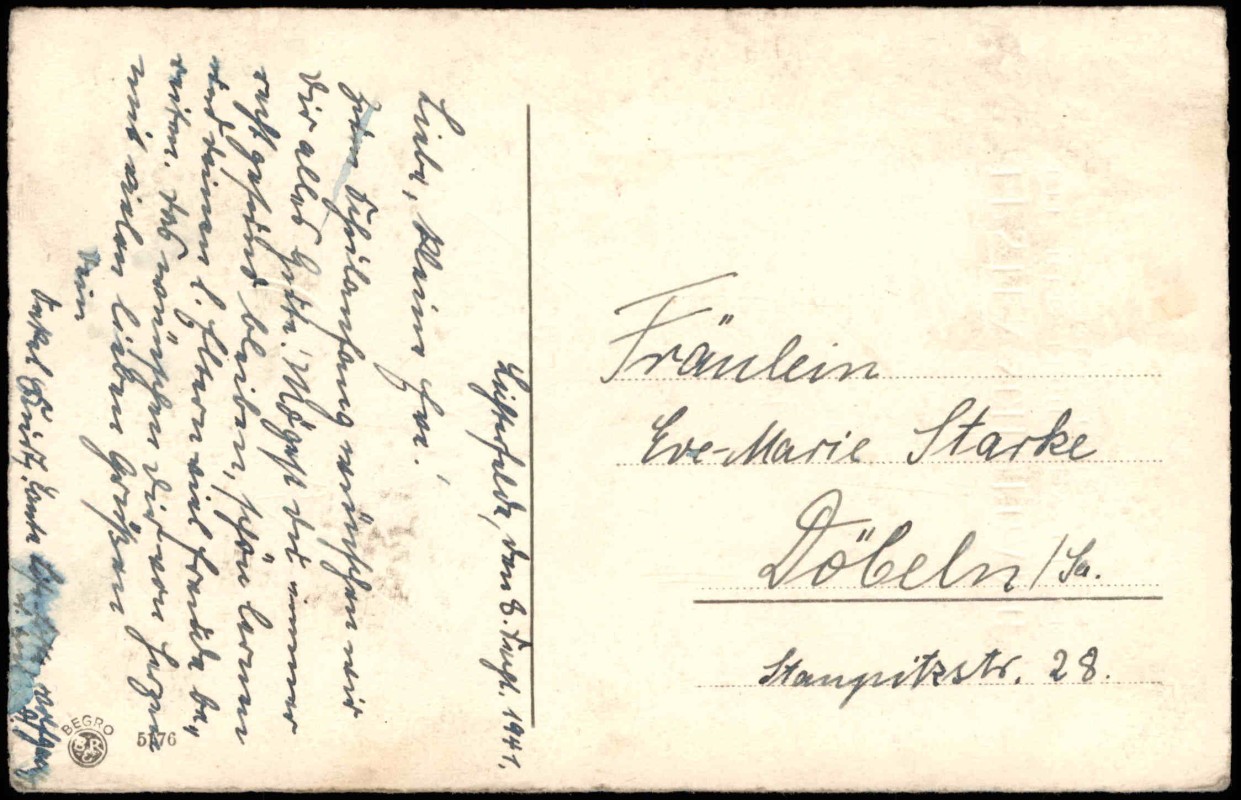 Lichterfelde, den 8. Sept. 1941.
Liebe, kleine Evi!
Zum Schulanfang wünschen wir
Dir alles Gute. Mögest du immer
recht gesund bleiben, schön lernen
und deinen l. Eltern viel Freude be-
reiten, das wünschen dir von Herzen
mit vielen lieben Grüßen
Dein
Onkel Fritz, Tante
Fräulein
Eve-Marie Starke
Döbeln/Sa.
Staupitzstr. 28.
BEGRO
5176